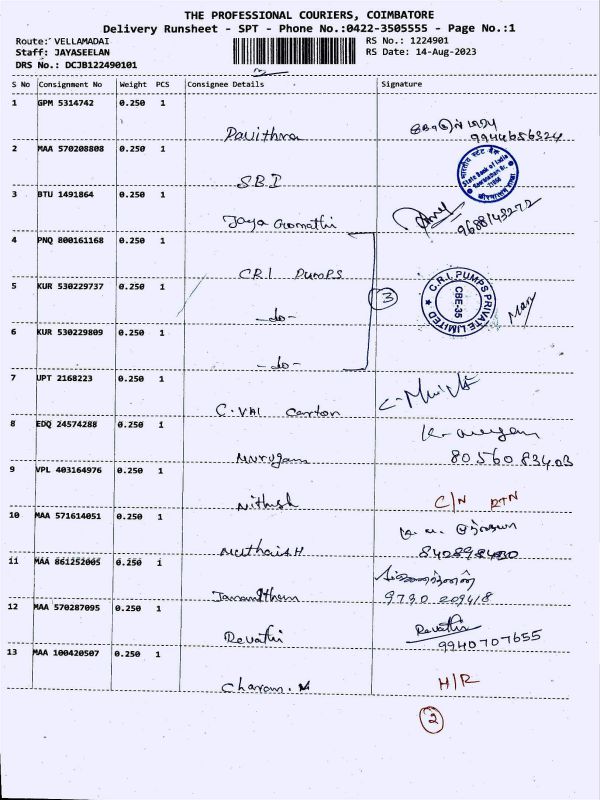 THE PROFESSIONAL COURIERS, COIMBATORE
Delivery Runsheet - SPT - Phone No.:0422-3505555 - Page No.:1
Route: VELLAMADAI RS No.: 1224901
Staff: JAYASEELAN RS Date: 14-Aug-2023
DRS No.: DCJB122490101
S No Consignment No Weight PCS Consignee Details Signature
1 GPM 5314742 0.250 1
Pavithra 9944656324
2 MAA 570208808 0.250 1
SBI State Bank of India
3 BTU 1491864 0.250 1
Jaya 9688143272
4 PNQ 800161168 0.250 1
C.R.I PUMPS C.R.I. PUMPS PRIVATE LIMITED CBE-35
5 KUR 530229737 0.250 1
3
-do-
6 KUR 530229809 0.250 1
-do-
7 UPT 2168223 0.250 1
Carton
8 EDQ 24574288 0.250 1
Murugan 80560 83403
9 VPL 403164976 0.250 1
Nithish C/N RTN
10 MAA 571614051 0.250 1
11 MAA 861252005 0.250 1
9790 209418
12 MAA 570287095 0.250 1
Revathi Revathi 9940707655
13 MAA 100420507 0.250 1
Charan. M H/R
2